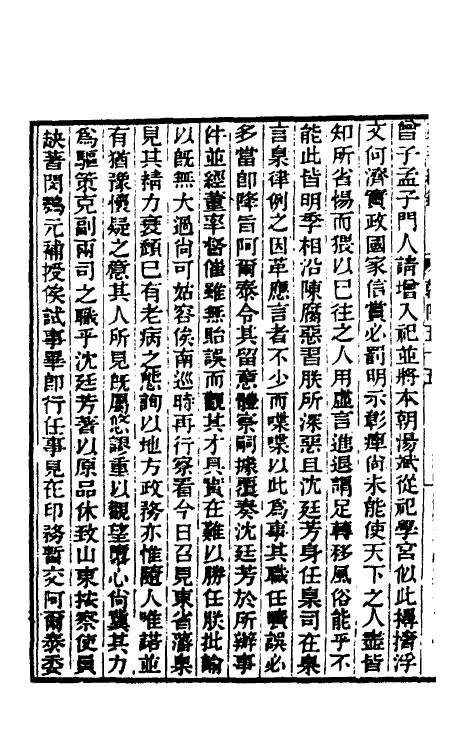 曾子孟子門人請增入祀並將本朝湯斌從祀學宮似此撏撦浮
文何濟實政國家信賞必罰明示彰癉尚未能使天下之人盡皆
知所省惕而猥以已往之人用虛言進退謂足轉移風俗能乎不
能此皆明季相沿陳腐惡習朕所深惡且沈廷芳身任臬司在臬
言臬律例之因革應言者不少而喋喋以此為事其職任曠誤必
多當即降旨阿爾泰令其留意體察嗣據覆奏沈廷芳於所辦事
件並經董率督催雖無貽誤而觀其才具實在難以勝任朕批諭
以旣無大過尚可姑容俟南巡時再行察看今日召見東省藩臬
見其精力衰頹巳有老病之態詢以地方政務亦惟隨人唯諾並
有猶豫懷疑之意其人所見旣屬悠謬重以觀望隳心尚冀其力
為驅策克副兩司之職乎沈廷芳著以原品休致山東按察使員
缺著閔鶚元補授俟試事畢卽行任事見在印務暫交阿爾泰委